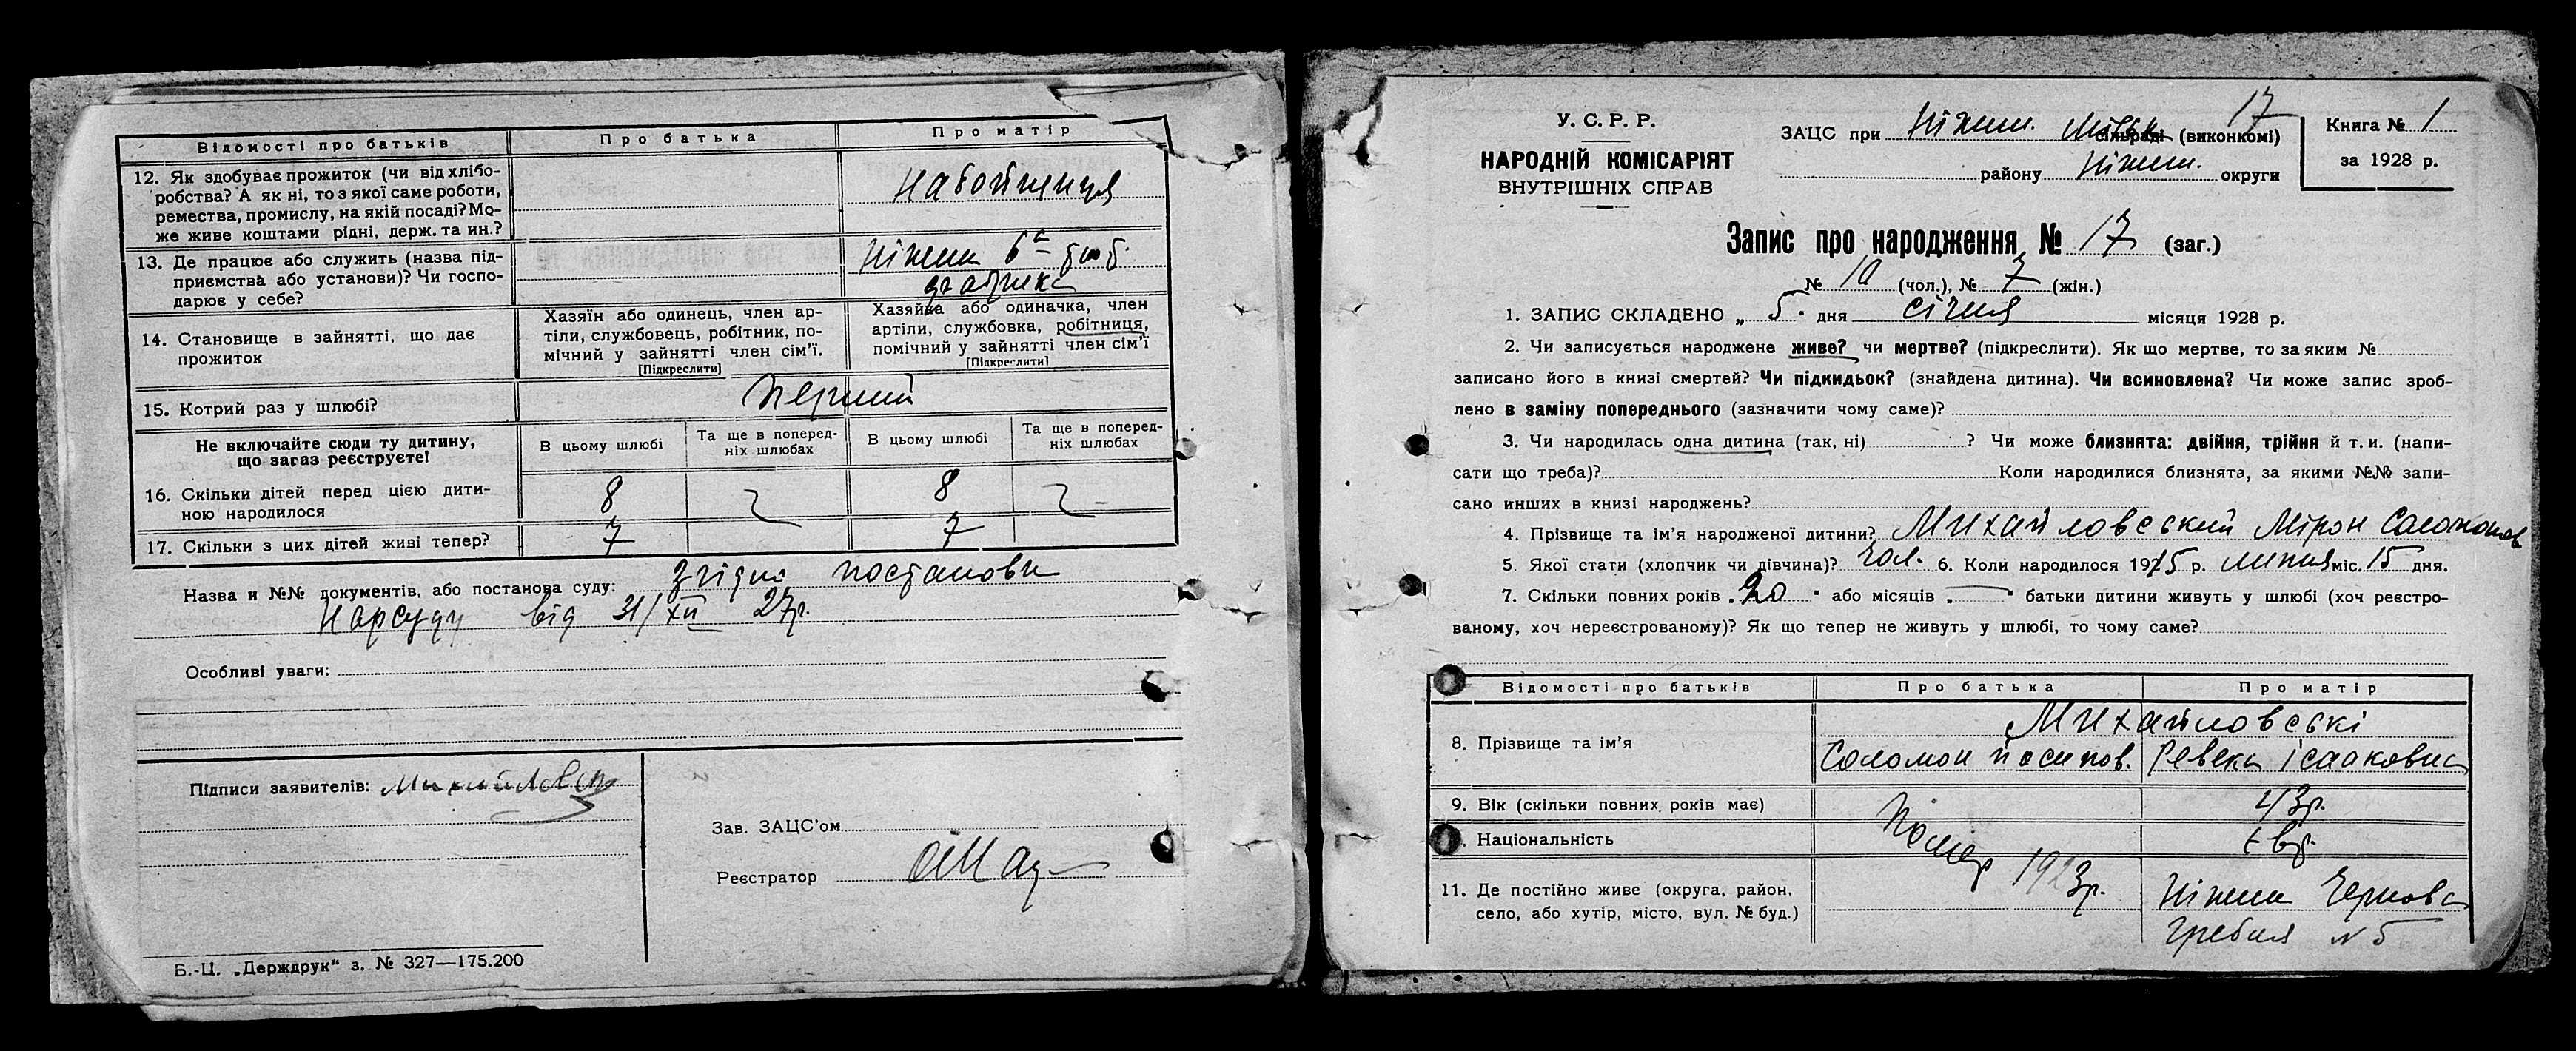 Відомості про батьків
Про батька
Про матір
12. Як здобуває прожиток (чи від хлібо-
робства? А як ні, то з якої саме роботи,
ремества, промислу, на якій посаді? Мо-
же живе коштами рідні, держ. та ин.?
набойщиця
13. Де працює або служить (назва під-
приємства або установи)? Чи госпо-
дарює у себе?
Ніжин 6а тют.
фабрика
14. Становище в зайнятті, що дає
прожиток
Хазяїн або одинець, член ар-
тіли, службовець, робітник, по-
мічний у зайнятті член сім’ї.
[Підкреслити]
Хазяйка або одиначка, член
артіли, службовка, робітниця,
помічний у зайнятті член сім’ї
[Підкреслити]
15. Котрий раз у шлюбі?
перший
Не включайте сюди ту дитину,
що загаз реєструєте!
В цьому шлюбі
Та ще в поперед-
ніх шлюбах
В цьому шлюбі
Та ще в поперед-
ніх шлюбах
16. Скільки дітей перед цією дити-
ною народилося
8
8
17. Скільки з цих дітей живі тепер?
7
7
Назва и №№ документів, або постанова суду: Згідно постанови
Нарсуду від 31/XII 27р.
Особливі уваги:
Підписи заявителів:
Зав. ЗАЦС’ом
Реєстратор
Б.-Ц. „Держдрук“ з. № 327—175.200
У. С. Р. Р.
НАРОДНІЙ КОМІСАРІЯТ
ВНУТРІШНІХ СПРАВ
17
ЗАЦС при Ніжин. Міськ сільраді (виконкомі)
району Ніжин. округи
Книга № 1
за 1928 р.
Запис про народження № 17 (заг.)
№ 10 (чол.), № 7 (жін.)
1. ЗАПИС СКЛАДЕНО „ 5 " дня січня місяця 1928 р.
2. Чи записується народжене живе? чи мертве? (підкреслити). Як що мертве, то за яким №
записано його в книзі смертей? Чи підкидьок? (знайдена дитина). Чи всиновлена? Чи може запис зроб-
лено в заміну попереднього (зазначити чому саме)?
3. Чи народилась одна дитина (так, ні) ? Чи може близнята: двійня, трійня й т. и. (напи-
сати що треба)? Коли народилися близнята, за якими №№ запи-
сано инших в книзі народжень?
4. Прізвище та ім’я народженої дитини? Михайловський Мірон Соломонов
5. Якої стати (хлопчик чи дівчина)? Чол. 6. Коли народилося 1915 р. липня міс. 15 дня.
7. Скільки повних років „ 20 " або місяців „ — " батьки дитини живуть у шлюбі (хоч реєстро-
ваному, хоч нереєстрованому)? Як що тепер не живуть у шлюбі, то чому саме?
Відомості про батьків
Про батька
Про матір
8. Прізвище та ім’я
Михайловські
Соломон Йосипов.
Ревека Ісааковна
9. Вік (скільки повних років має)
43р.
Національність
Помер 1923р.
євр.
11. Де постійно живе (округа, район,
село, або хутір, місто, вул. № буд.)
Ніжин Чернова
Гребля № 5